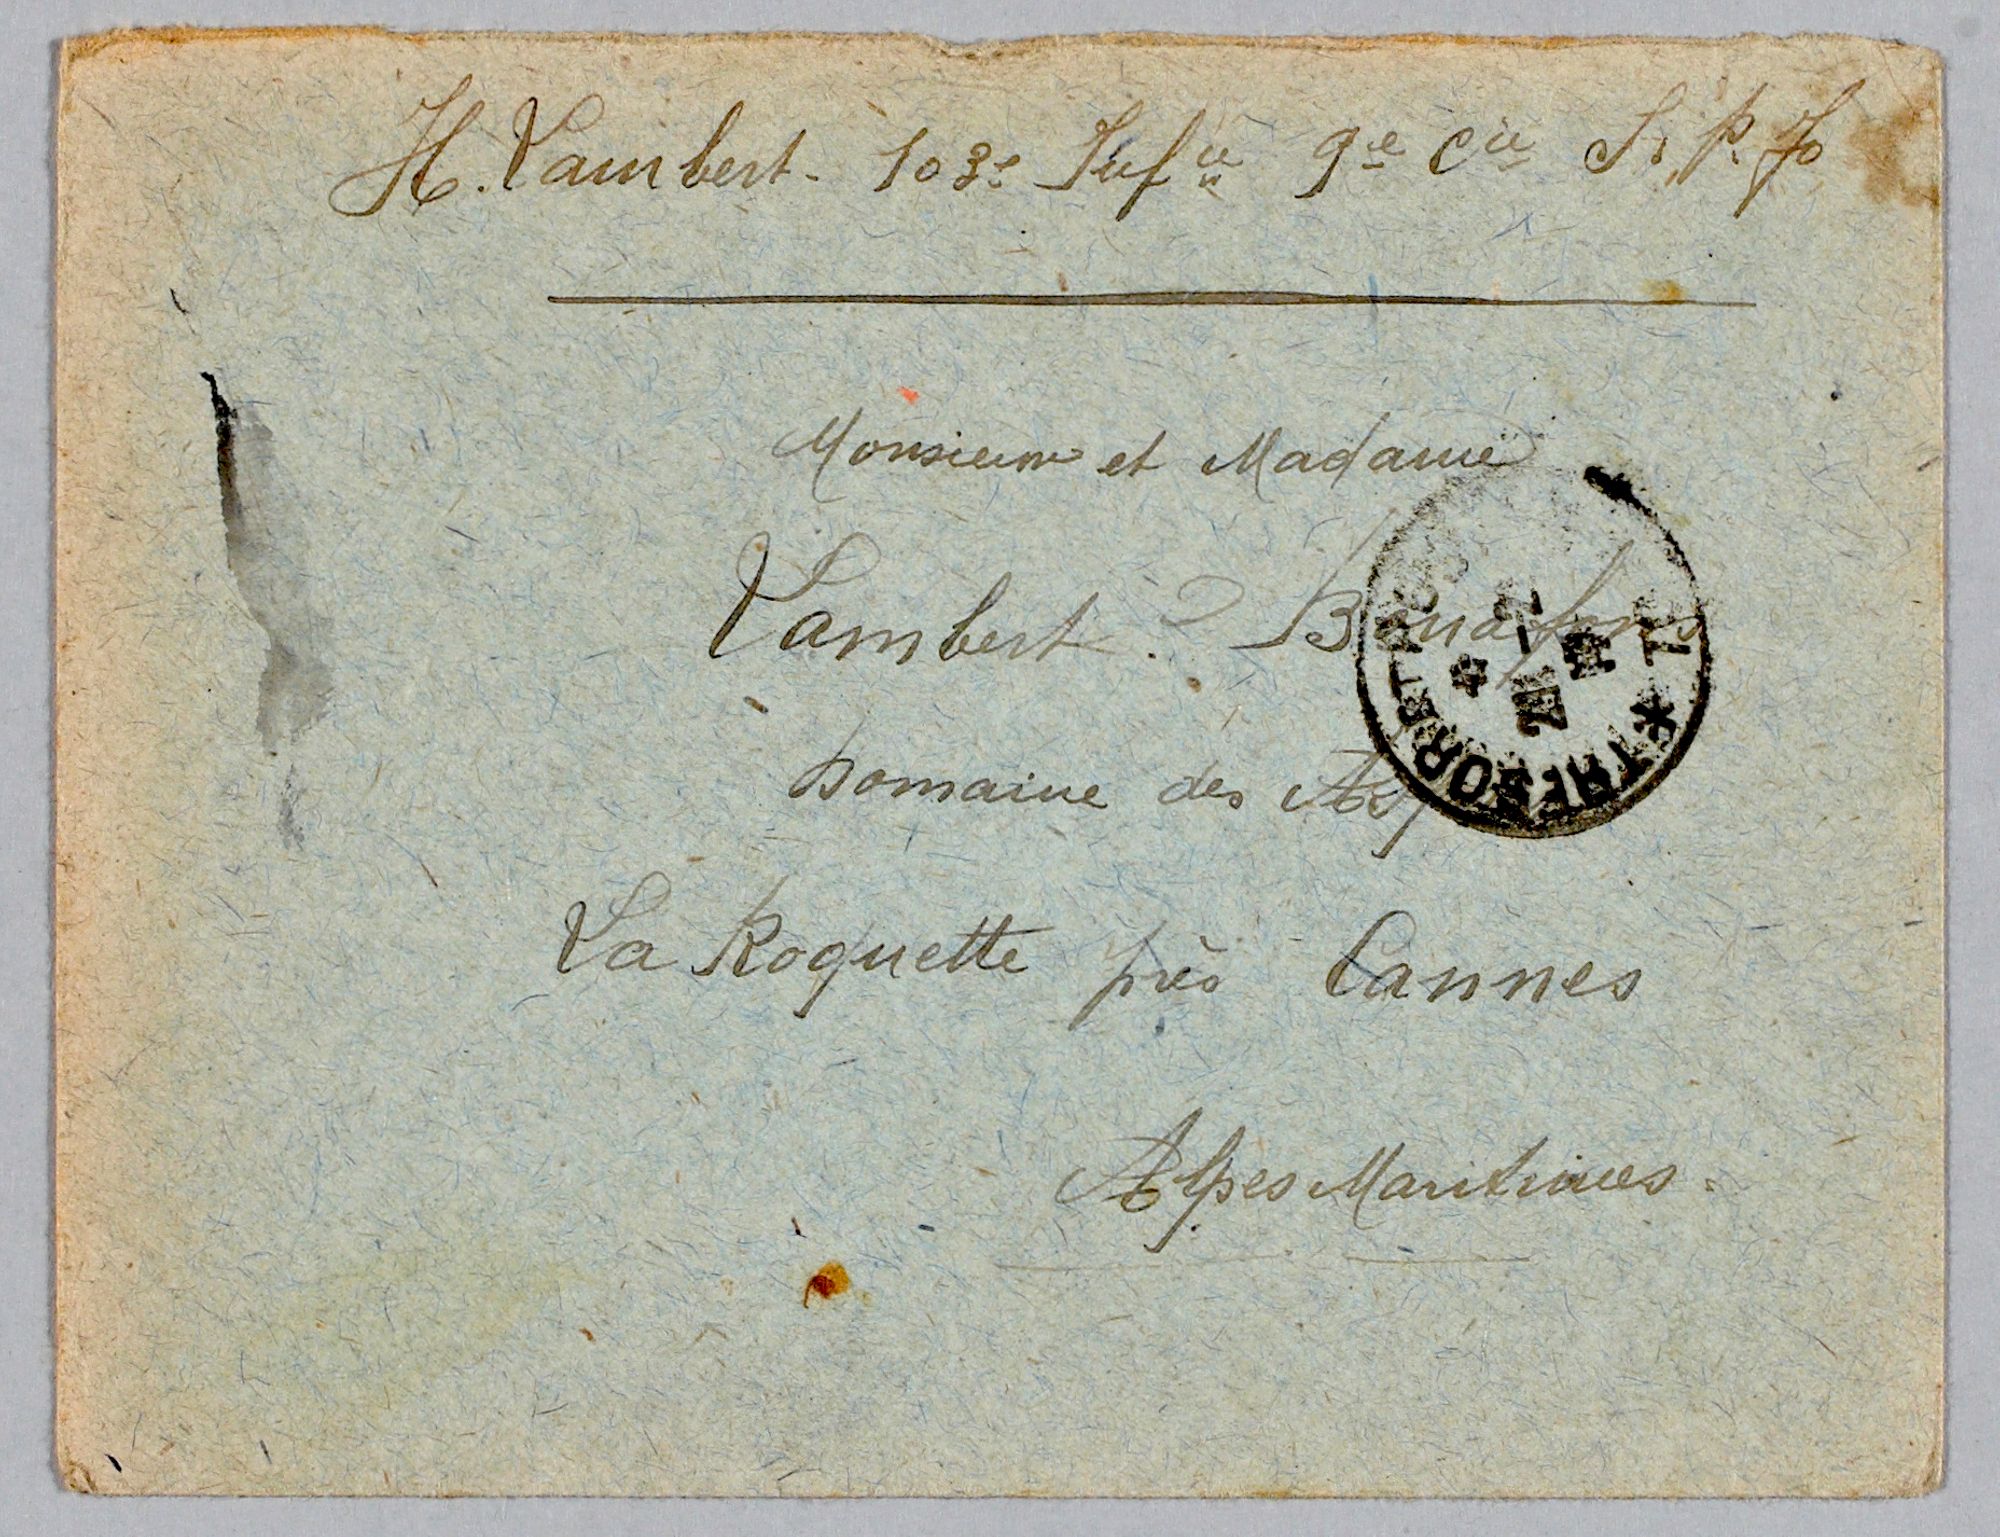 H. Lambert. 103e Infie 9e Cie S. P. 70
Monsieur et Madame
Lambert. Bonafons
Domaine des
La Roquette près Cannes
Alpes Maritimes.
* TRESOR ET POSTES